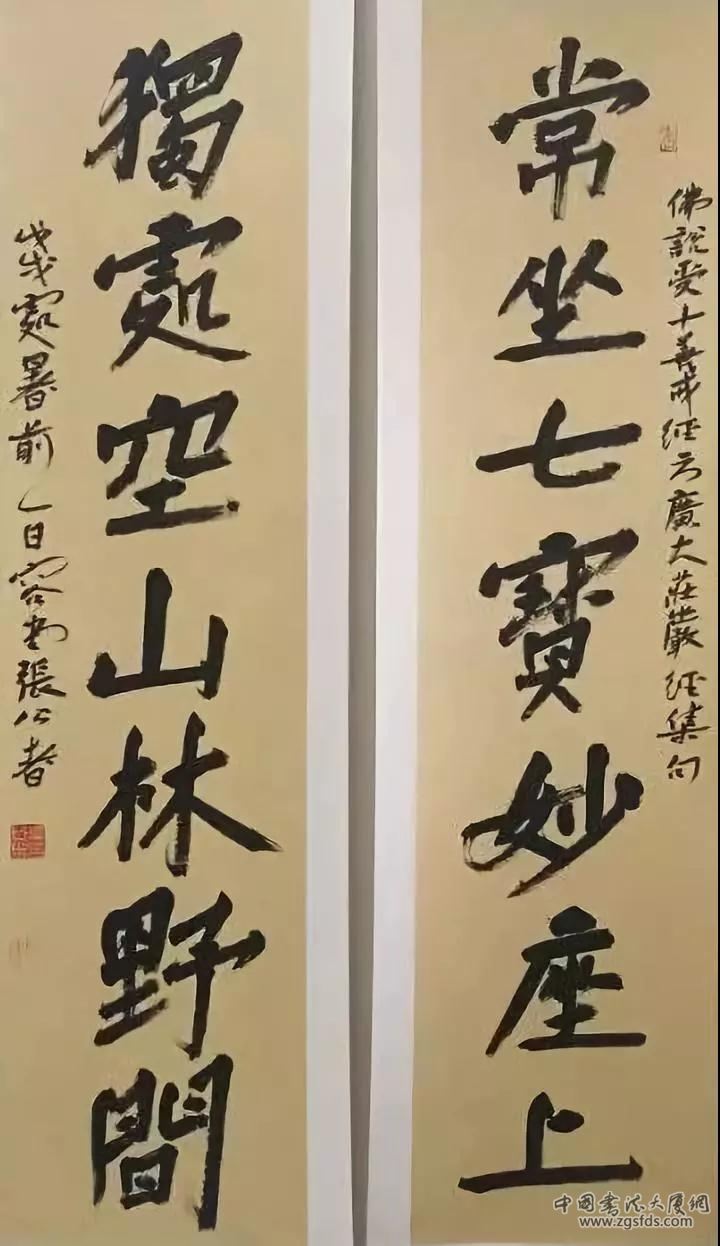 佛說受十善戒經云廣大莊嚴經集句
常坐七寶妙座上
獨處空山林野間
戊戌處暑前一日容堂張公者
中国书法大厦網
www.zgsfds.com